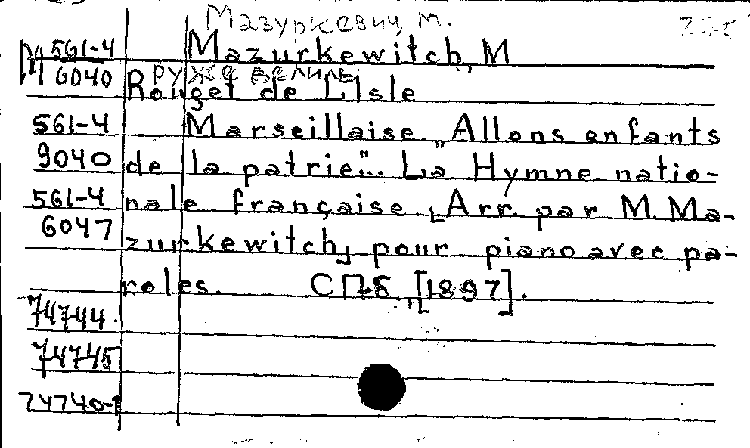 Мазуркевич, М.
М 561-4 Mazurkewitch, M
6040 Руже де Лиль
Rouget de L'Isle
561-4 Marseillaise „Allons enfants
9040 de la patrie". La Hymne natio-
561-4 nale française [Arr. par M. Ma-
6047 zurkewitch] pour piano avec pa-
roles. СПб, [1897].
74744
74745
74740-1